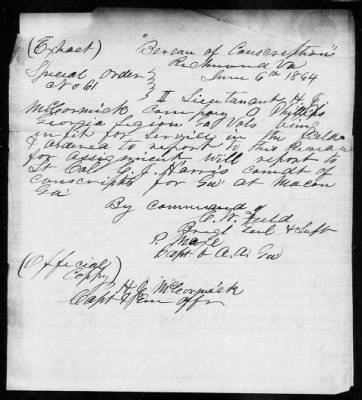 (Extract) "Bereau of Conscription"
Richmond Va
Special Order June 6th 1864
No 61
II Lieutenant H. J.
McCormick Company O Phillips
Georgia Legion Ga Vols being
unfit for Service in the
& ordered to report to this Bureau
for assignment will report to
Lt Col C. J. Harris comdt of
Conscripts for Ga at Macon
Ga
By command of
C. W. Feild
Brigd Genl & Supt
P.
Capt & A. A. Ge
(Official
Coppy)
H. J. McCormick
Capt & Em offr